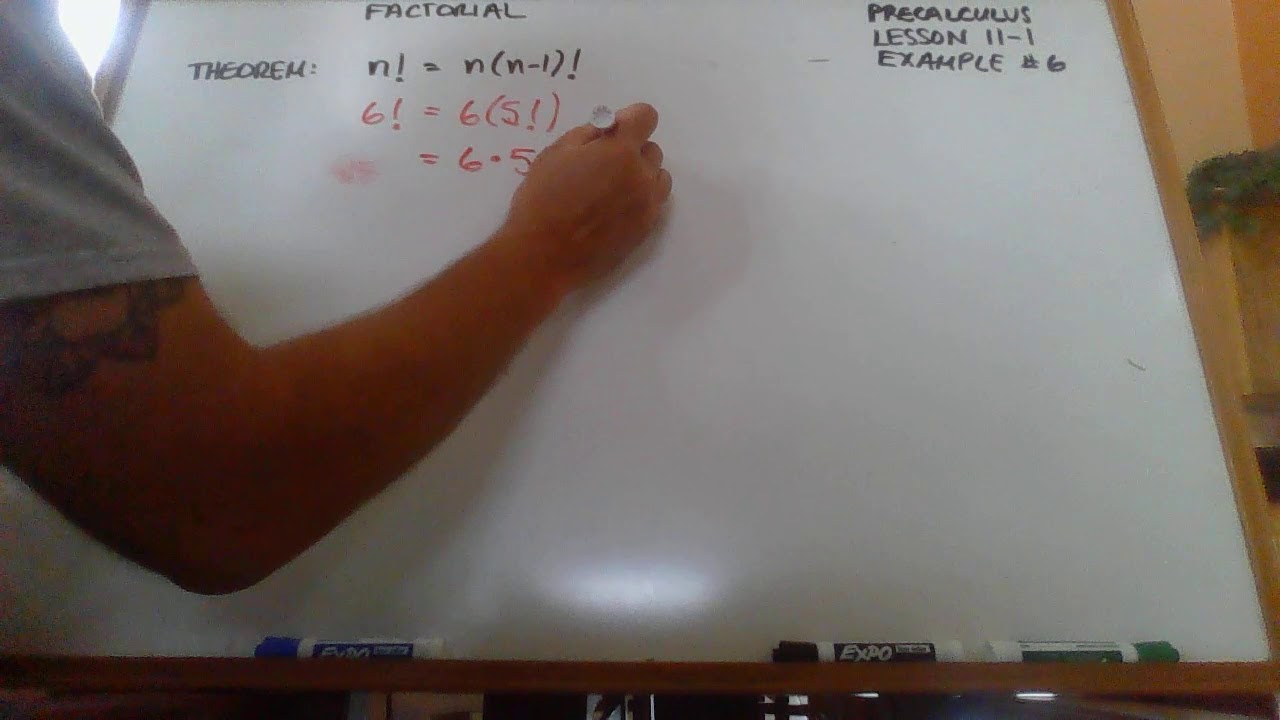 FACTORIAL
PRECALCULUS
LESSON 11-1
EXAMPLE #6
THEOREM: n! = n(n-1)!
6! = 6(5!)
= 6·5
EXPO
EXPO